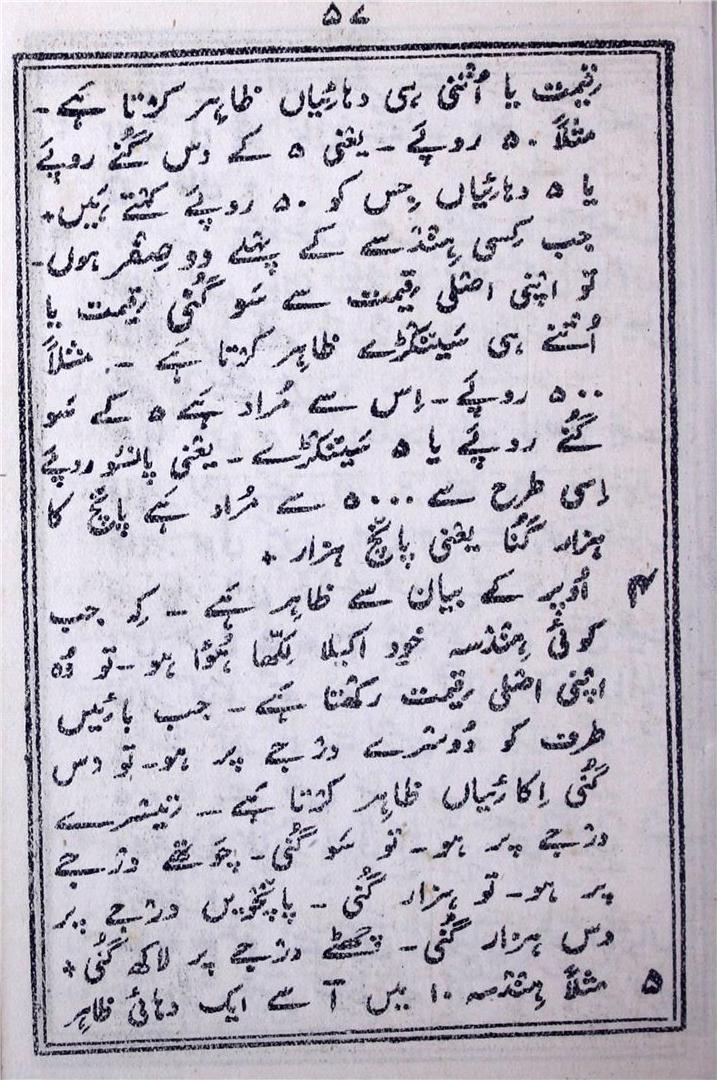 ۵۷
قیمت یا اُتنی ہی دہائیاں ظاہر کرتا ہے ۔
مثلاً ۵۰ روپے ۔ یعنی ۵ کے دس گُنے روپے
یا ۵ دہائیاں جِس کو ۵۰ روپے کہتے ہَیں +
جب کِسی ہِندسے کے پہلے دو صِفر ہوں ۔
تو اپنی اصلی قیمت سے سَو گُنی قیمت یا
اُتنے ہی سَینکڑے ظاہر کرتا ہَے ۔ مثلاً
۵۰۰ روپے ۔ اِس سے مُراد ہَے ۵ کے سَو
گُنے روپے یا ۵ سَینکڑے ۔ یعنی پانسَو روپے
اِسی طرح سے ۵۰۰۰ سے مُراد ہَے پانچ کا
ہزار گُنا یعنی پانچ ہزار +
۴ اُوپر کے بیان سے ظاہر ہَے ۔ کہ جب
کوئی ہِندسہ خود اکیلا لِکھا ہُؤا ہو ۔ تو وُہ
اپنی اصلی قیمت رکھتا ہَے ۔ جب بائیں
طرف کو دُوسرے درجے پر ہو ۔ تو دس
گُنی اِکائیاں ظاہر کرتا ہَے ۔ تیسرے
درجے پر ہو ۔ تو سَو گُنی ۔ چَوتھے درجے
پر ہو ۔ تو ہزار گُنی ۔ پانچویں درجے پر
دس ہزار گُنی ۔ چھٹے درجے پر لاکھ گُنی +
۵ مثلاً ہِندسہ ۱۰ میں آ سے ایک دہائی ظاہر